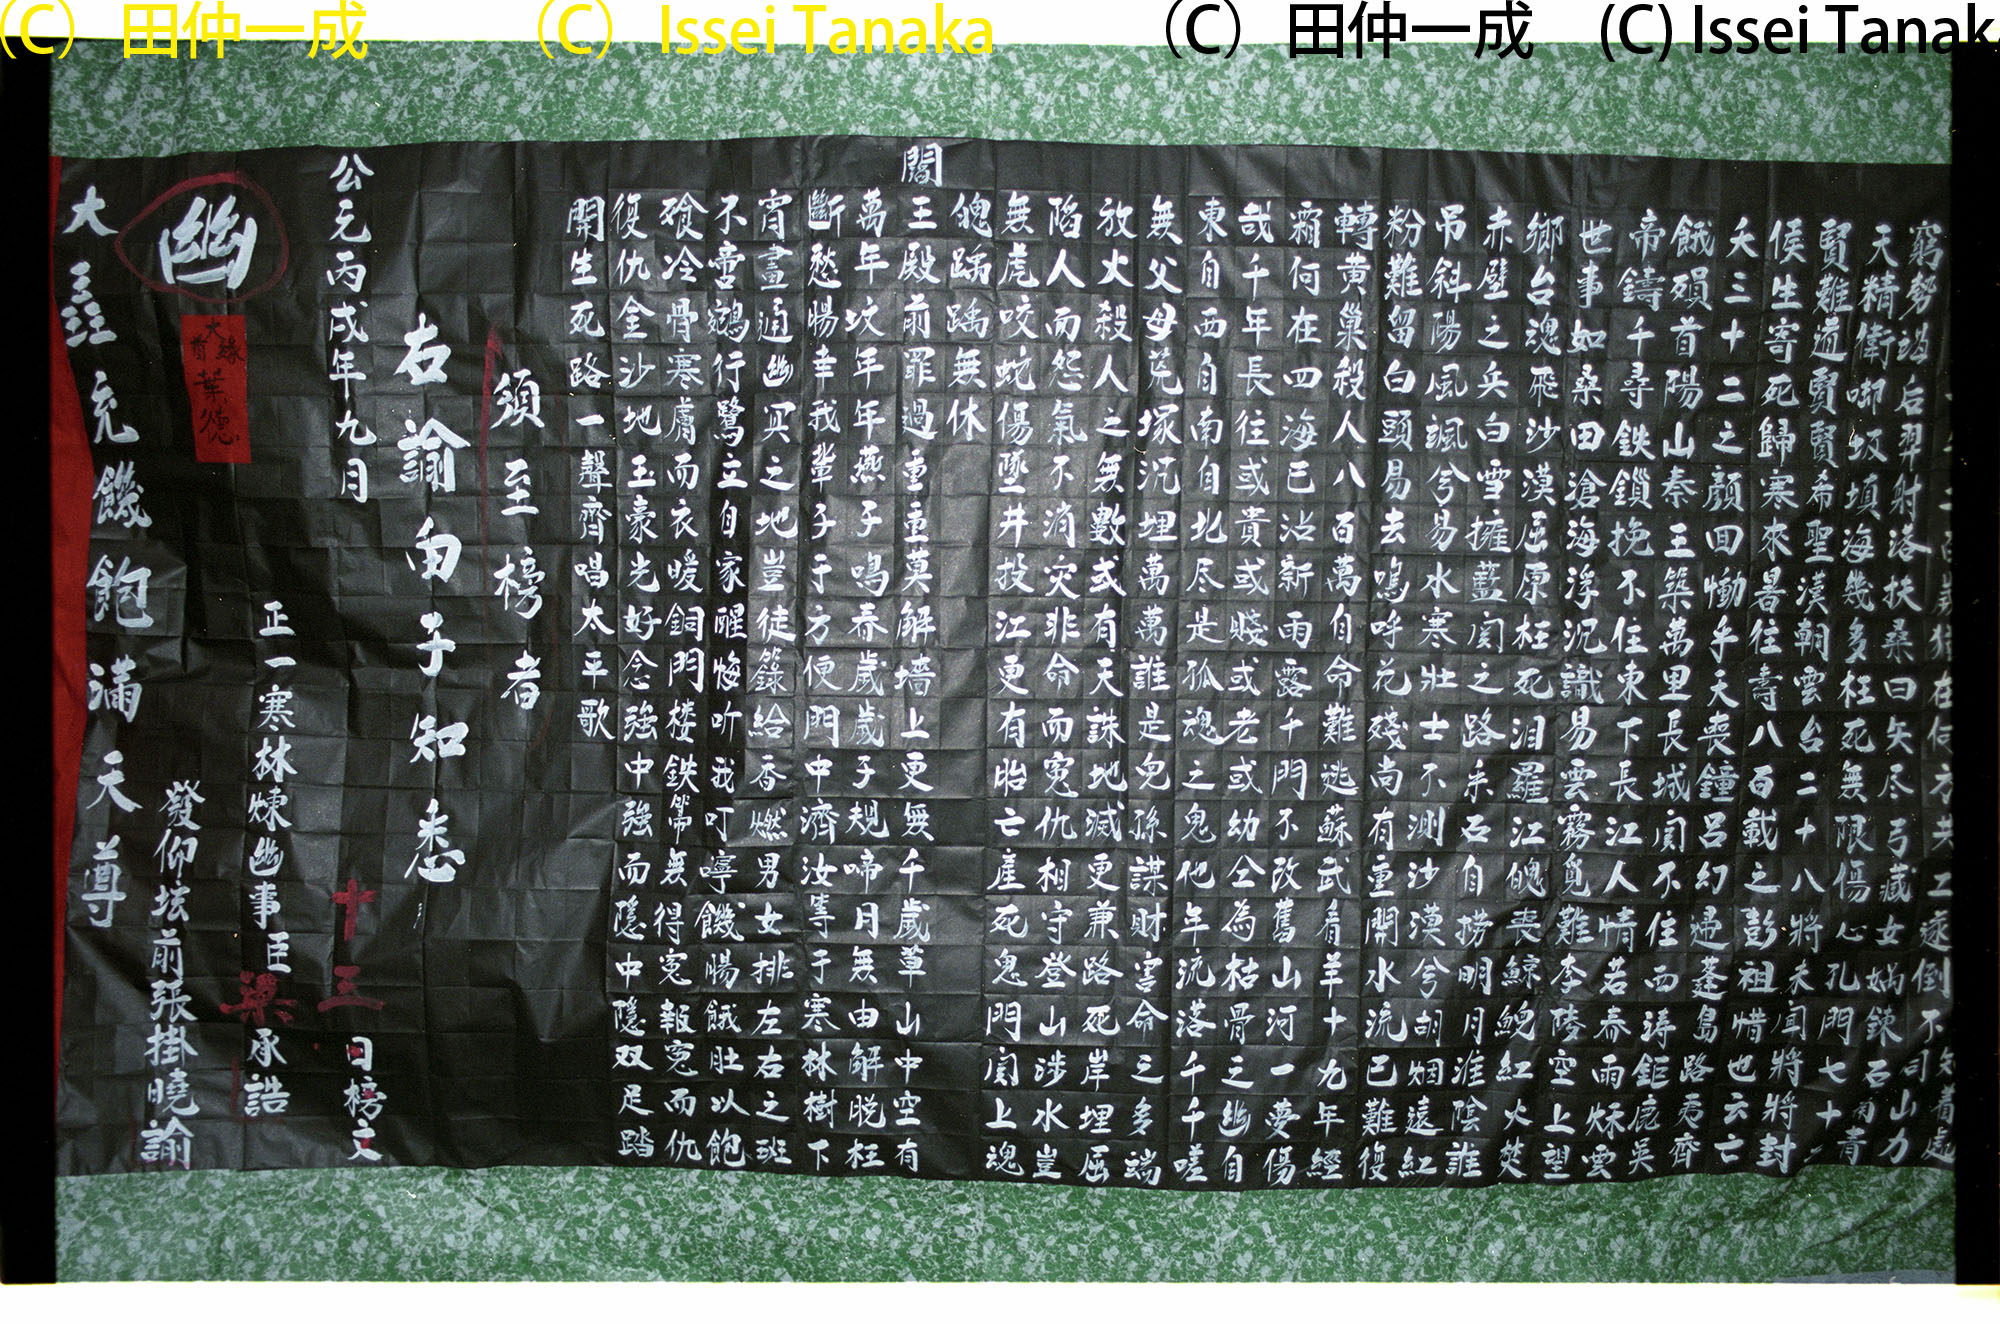 二百歲猶在何方共工逐倒不周山力
窮勢竭后羿射落扶桑曰矢尽弓藏女媧鍊石青
天精衛啣坂填海幾多枉死無限傷心孔門七十
賢難道賢賢希聖漢朝雲台二十八將未聞將將封
侯生寄死歸寒來暑往壽八百載之彭祖惜也云亡
夭三十二之顏回慟乎天喪鐘呂幻遊蓬島路夷齊
餓殞首陽山秦王築萬里長城関不住而濤鉅鹿吳
帝鑄千尋鉄鎖挽不住東下長江人情若春雨秌雲
世事如桑田滄海浮沉識易雲霧覓難李陵空上望
鄉台魂飛沙漠屈原枉死汨羅江魄喪鯨鯢紅火焚
赤壁之兵白雪擁藍関之路采石自捞明月淮陰誰
吊斜陽風颯兮易水寒壯士不測沙漠兮胡烟遠紅
粉難留白頭易去鳴呼花殘尚有重開水流已難復
轉黃巢殺人八百萬自命難逃蘇武看羊十九年經
霜何在四海已沾新雨露千門不改舊山河一夢傷
哉千年長往或貴或賤或老或幼仝為枯骨之幽自
東自西自南自北尽是孤魂之鬼他年流落千千嗟
無父母荒塚沉埋萬萬誰是兒孫謀財害命之多端
放火殺人之無數或有天誅地滅更兼路死岸埋屈
陷人而怨氣不消灾非命而寃仇相守登山涉水豈
無虎咬蛇傷墜井投江更有胎亡產死鬼門関上魂
魄踽踽無休
閻王殿前罪過重重莫解墻上更無千歲草山中空有
萬年坟年年燕子鳴春歲歲子規啼月無由解脫枉
斷愁腸幸我輩子于方便門中濟汝等于寒林樹下
宵晝通幽冥之地豈徒籙給香燃男女排左右之班
不啻鵷行鷺立自家醒悔听我叮嚀饑腸餓肚以飽
飱冷骨寒膚而衣暖銅門楼鉄箒無得寃報寃而仇
復仇金沙地玉豪光好念強中強而隱中隱双足踏
開生死路一聲齊唱太平歌
須至榜者
右諭由子知悉
公元丙戌年九月十三日榜文
正一寒林煉幽事臣梁承誥
幽
大緣首葉德
發仰坛前張掛曉諭
大聖充饑飽滿天尊
(C) 田仲一成 (C) Issei Tanaka (C) 田仲一成 (C) Issei Tanak